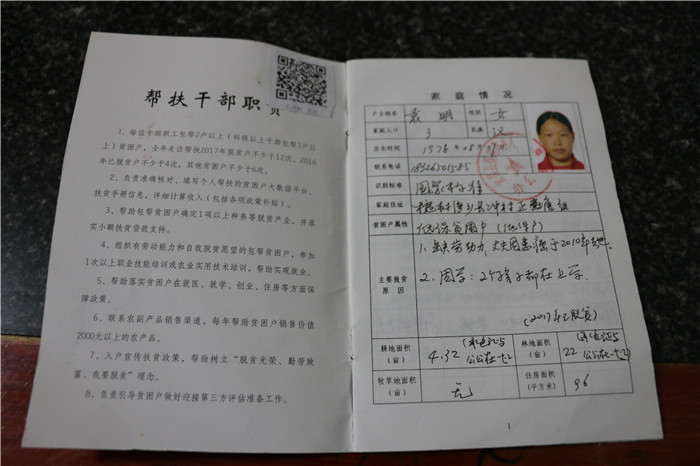 帮扶干部职责
1、每位干部职工包帮2户以上（科级以上干部包帮3户以
上）贫困户，全年走访帮扶2017年脱贫户不少于12次，2016
年已脱贫户不少于4次，其他贫困户不少于6次。
2、负责准确核对、填写个人帮扶的贫困户大数据平台、
扶贫手册信息，详细计算收入（包括各项政策补贴）。
3、帮助包帮贫困户确定1项以上种养等脱贫产业，并落
实小额扶贫贷款支持。
4、组织有劳动能力和自我脱贫愿望的包帮贫困户，参加
1次以上职业技能培训或农业实用技术培训，帮助实现就业。
5、帮助落实贫困户在就医、就学、创业、住房等方面保
障政策。
6、联系农副产品销售渠道，每年帮助贫困户销售价值
2000元以上的农产品。
7、入户宣传扶贫政策，帮助树立“脱贫光荣、勤劳致
富、我要脱贫”理念。
8、负责引导贫困户做好迎接第三方评估准备工作。
家庭情况
户主姓名 袁明 性别 女
家庭人口 3 民族 汉
出生时间 1978年
联系电话
识别标准 国家标准
家庭住址
贫困户属性 低保贫困户（低保户）
主要致贫
原因
1、缺失劳动力，丈夫因患病于2010年去世。
2、因学：2个孩子都在上学。
（2017年已脱贫）
耕地面积
（亩） 4.32 林地面积
（亩） 22
牧草地面积
（亩） 无 住房面积
（平方米） 96
1